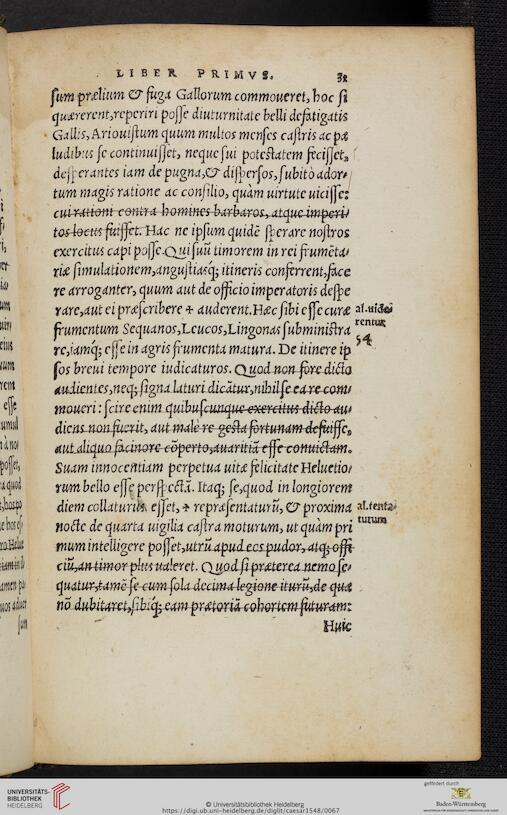 LIBER PRIMVS. 32
sum prælium & fuga Gallorum commoueret, hoc si
quærerent, reperiri posse diuturnitate belli defatigatis
Gallis, Ariouistum quum multos menses castris ac pa
ludibus se continuisset, neque sui potestatem fecisset,
desperantes iam de pugna, & dispersos, subitò ador-
tum magis ratione ac consilio, quàm uirtute uicisse:
cui rationi contra homines barbaros, atque imperi-
tos locus fuisset. Hac ne ipsum quidē sperare nostros
exercitus capi posse. Qui suū timorem in rei frumēta-
riæ simulationem, angustiasq; itineris conferrent, face
re arroganter, quum aut de officio imperatoris despe
rare, aut ei præscribere + auderent. Hæc sibi esse curæ
al. uide-
rentur
frumentum Sequanos, Leucos, Lingonas subministra
54
re, iamq; esse in agris frumenta matura. De itinere ip
sos breui tempore iudicaturos. Quod non fore dicto
audientes, neq; signa laturi dicātur, nihil se ea re com-
moueri: scire enim quibuscunque exercitus dicto au-
diens non fuerit, aut malè re gesta fortunam defuisse,
aut aliquo facinore cōperto, auaritiā esse conuictam.
Suam innocentiam perpetua uitæ felicitate Heluetio-
rum bello esse perspectā. Itaq; se, quod in longiorem
diem collaturus esset, + repræsentaturū, & proxima
al. tenta-
turum
nocte de quarta uigilia castra moturum, ut quàm pri
mum intelligere posset, utrū apud eos pudor, atq; offi
ciū, an timor plus ualeret. Quod si præterea nemo se-
quatur, tamē se cum sola decima legione iturū, de qua
nō dubitaret, sibiq; eam prætoriā cohortem futuram:
Huic
UNIVERSITÄTS-
BIBLIOTHEK
HEIDELBERG
© Universitätsbibliothek Heidelberg
https://digi.ub.uni-heidelberg.de/diglit/caesar1548/0067
gefördert durch
Baden-Württemberg